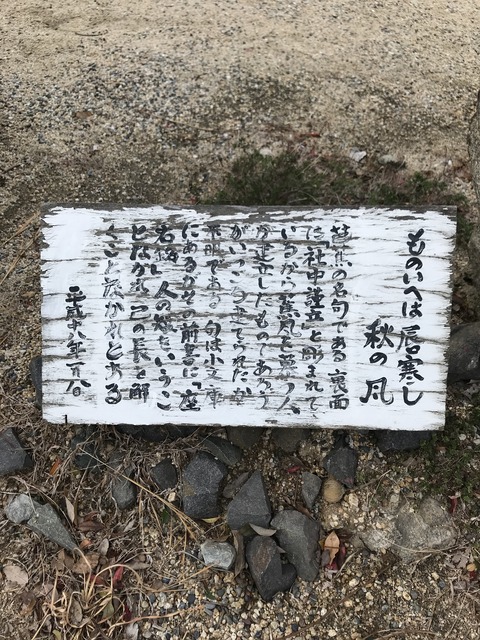 ものいへは唇寒し
秋の風
芭蕉の名句である 裏面
は「社中謹立」と彫まれて
いるから蕉風を慕う人
が建立したものであろう
がいつ頃建てられたか
不明である 句は小文庫
にあるがその前書に「座
右銘 人の短をいうこ
となかれ 己の長を解
くこと なかれとある
平成十八年一月八日